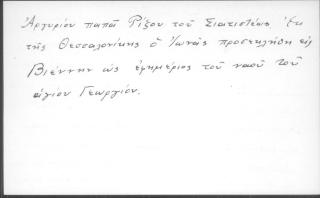 Ἀργυρίου παπᾶ Ρίζου τοῦ Σιατιστέως Ἐκ
τῆς Θεσσαλονίκης ὁ Ἰωνᾶς προσεκλήθη εἰς
Βιέννην ὡς ἐφημέριος τοῦ ναοῦ τοῦ
ἁγίου Γεωργίου.